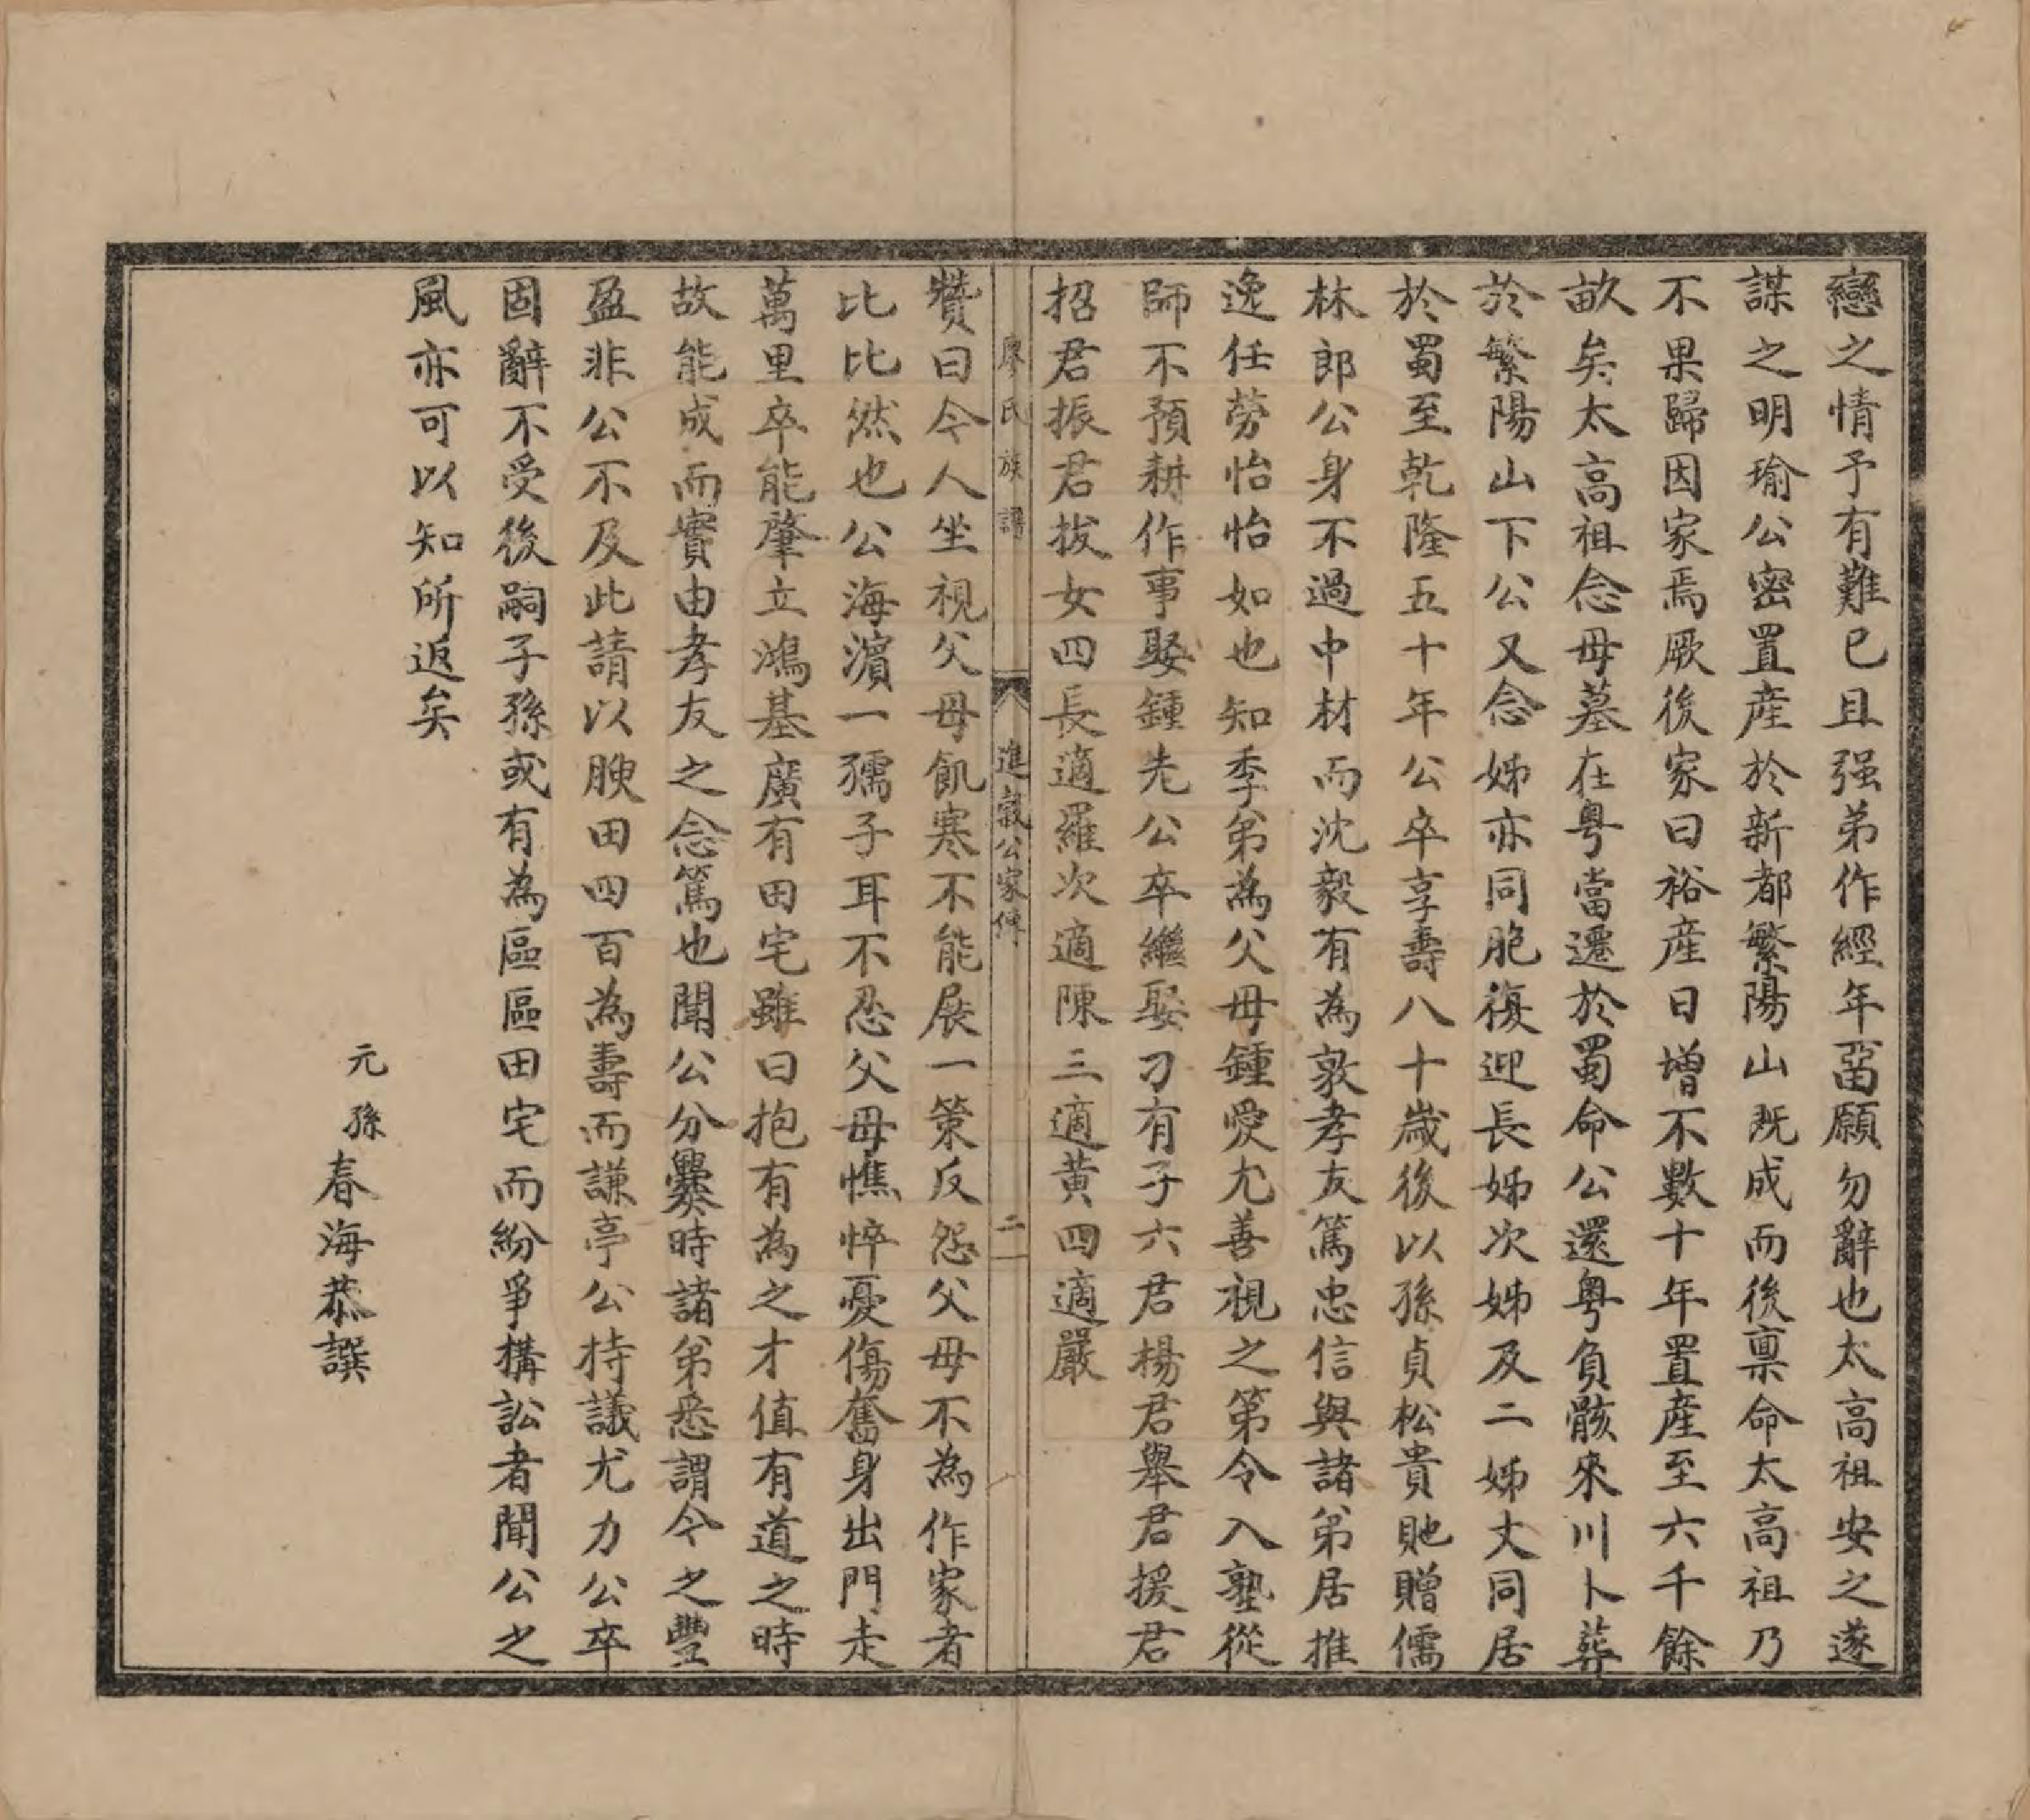 戀之情予有難已且强弟作經年畱願勿辭也太高祖安之遂
謀之明瑜公密置産於新都繁陽山既成而後禀命太高祖乃
不果歸因家焉厥後家日裕産日增不數十年置産至六千餘
畝矣太高祖念母墓在粤當遷於蜀命公還粤負骸來川卜葬
於繁陽山下公又念姊亦同胞復迎長姊次姊及二姊丈同居
於蜀至乾隆五十年公卒享壽八十歲後以孫貞松貴貤贈儒
林郎公身不過中材而沈毅有為敦孝友篤忠信與諸弟居推
逸任勞怡怡如也知季弟為父母鍾愛尤善視之第令入塾從
師不預耕作事娶鍾先公卒繼娶刁有子六君楊君舉君援君
招君振君拔女四長適羅次適陳三適黄四適嚴
廖氏族譜 進氣公家傳 二
贊曰今人坐視父母飢寒不能展一策反怨父母不為作家者
比比然也公海濵一孺子耳不忍父母憔悴憂傷奮身出門走
萬里卒能肇立鴻基廣有田宅雖曰抱有為之才值有道之時
故能成而實由孝友之念篤也聞公分爨時諸弟悉謂今之豐
盈非公不及此請以腴田四百為壽而謙亭公持議尤力公卒
固辭不受後嗣子孫或有為區區田宅而紛爭搆訟者聞公之
風亦可以知所返矣
元孫春海恭譔